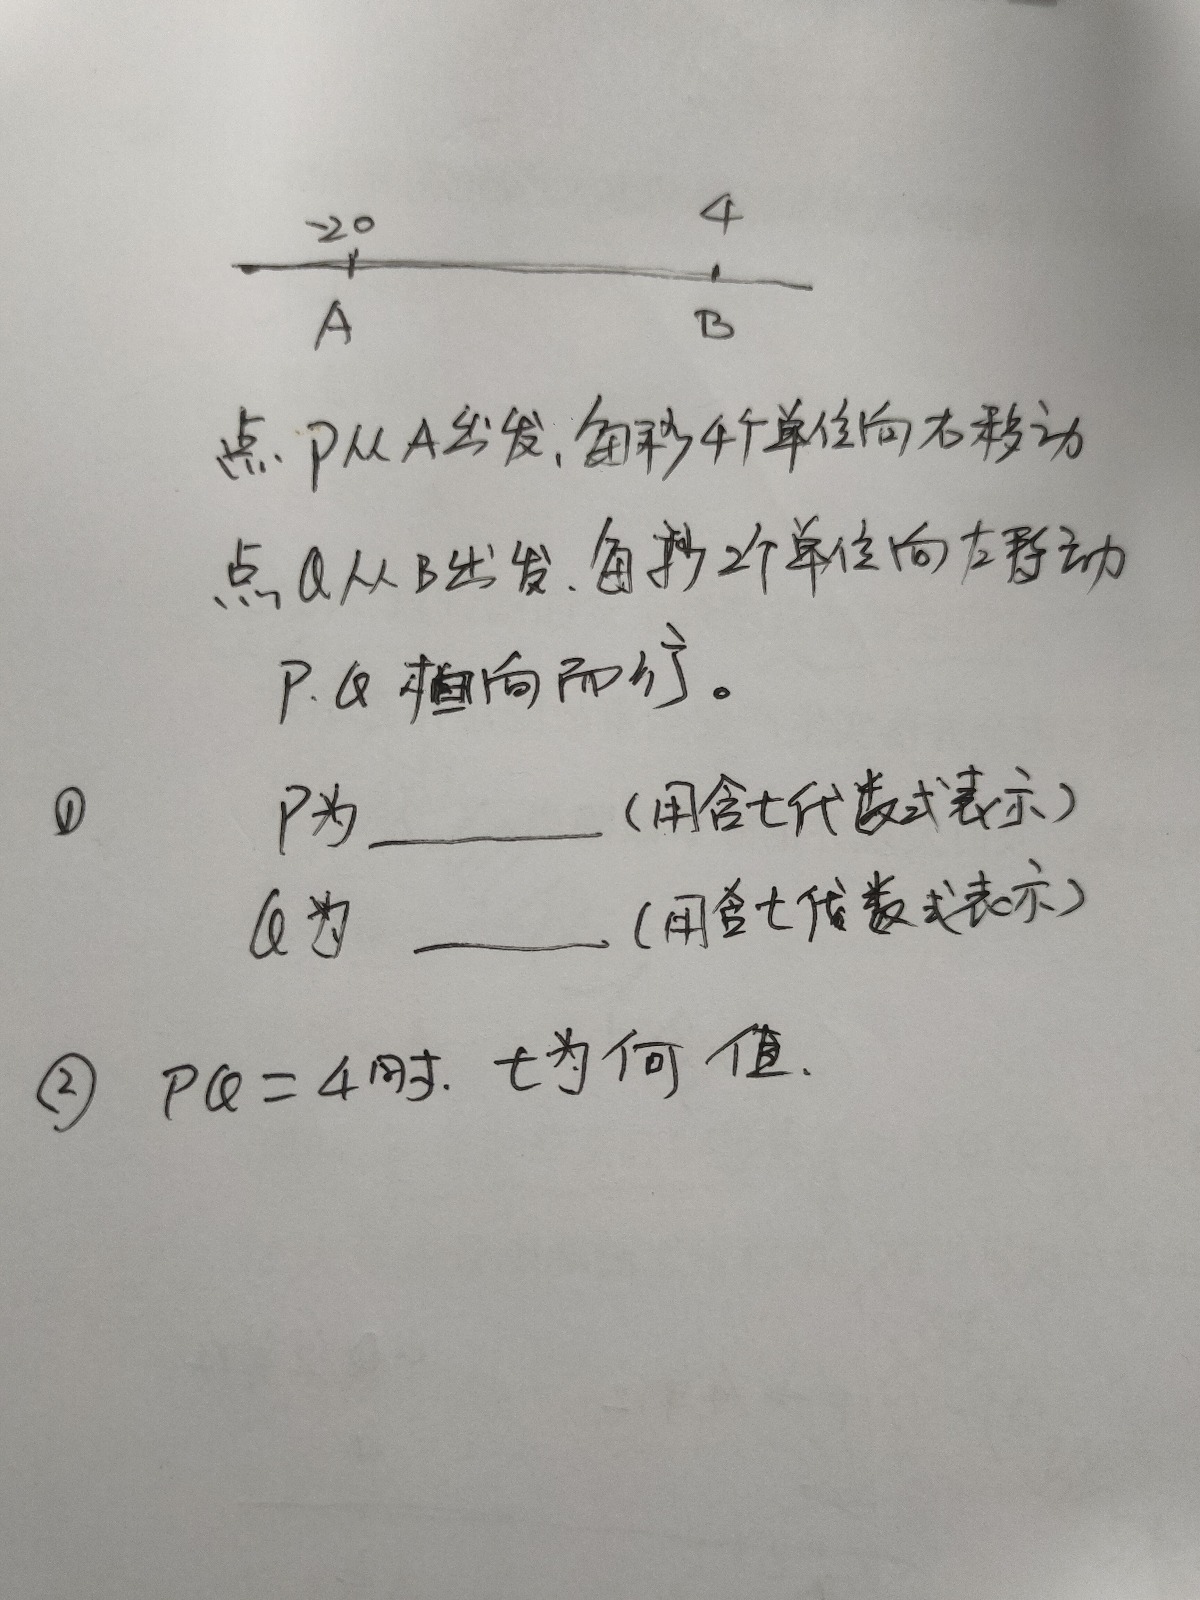 -20 4
A B
点P从A出发,每秒4个单位向右移动
点Q从B出发,每秒2个单位向左移动
P.Q相向而行。
① P为______(用含t代数式表示)
Q为______(用含t代数式表示)
② PQ=4时. t为何值.